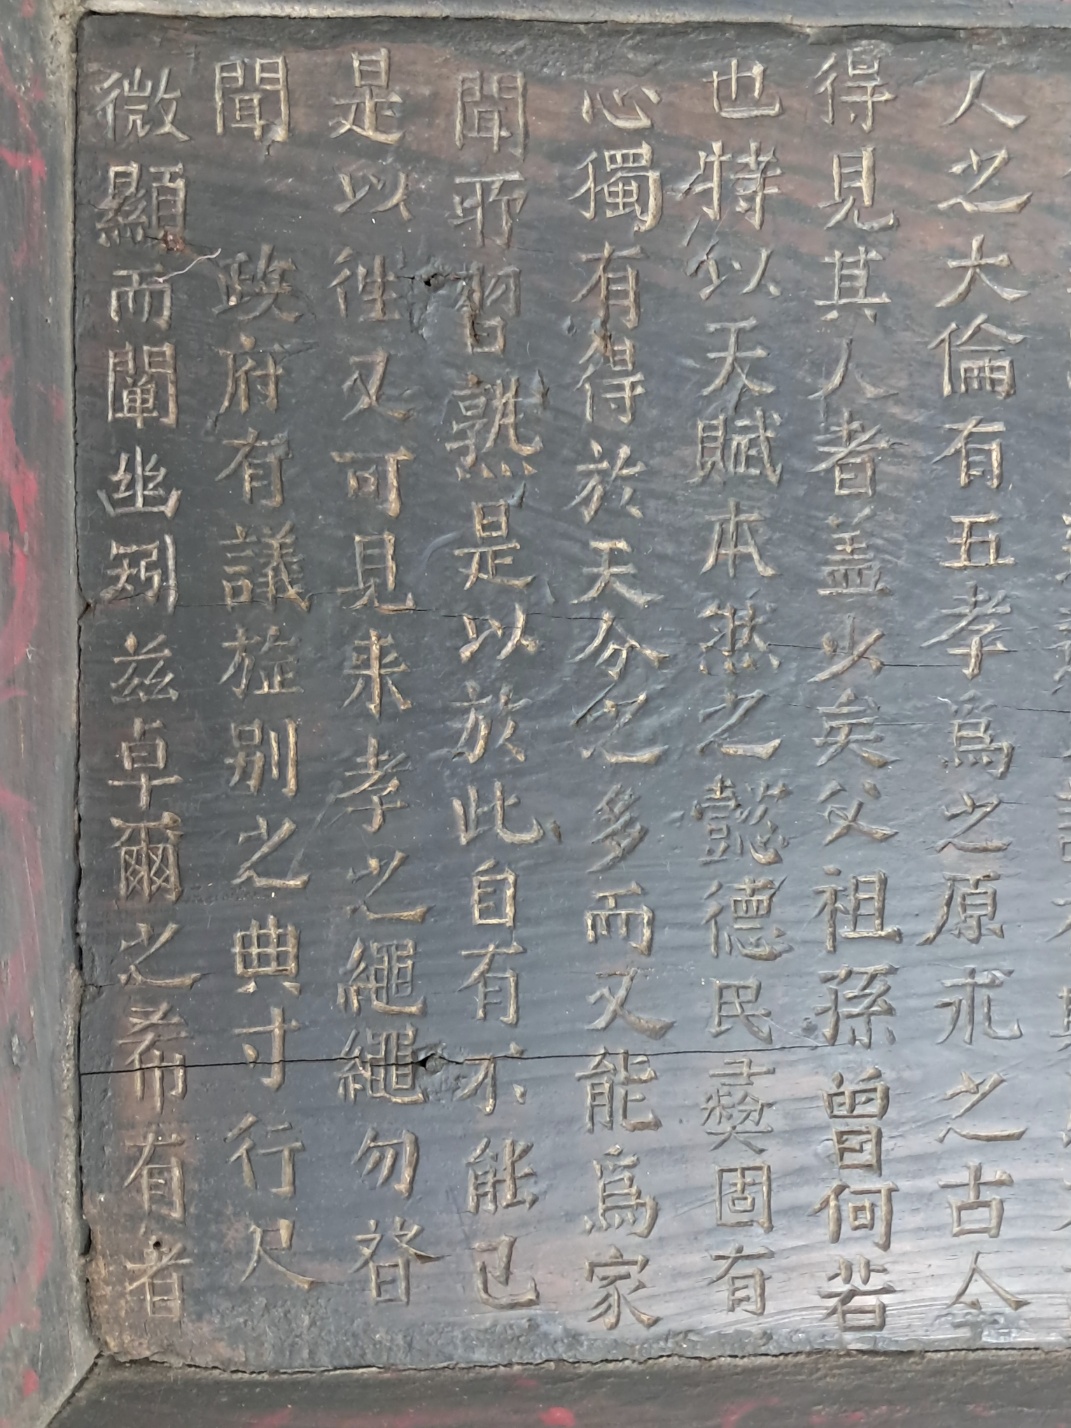 人之大倫有五孝爲之原求之古今
得見其人者盖少矣父祖孫曾何若
也特以天賦本然之懿德民彛固有
心獨有得於天分之多而又能爲家
聞耶習熟是以於此自有不能已
是以徃又可見来孝之繩繩勿替
聞 政府有議旌别之典寸行尺
微顯而闡幽矧兹卓爾之希有者